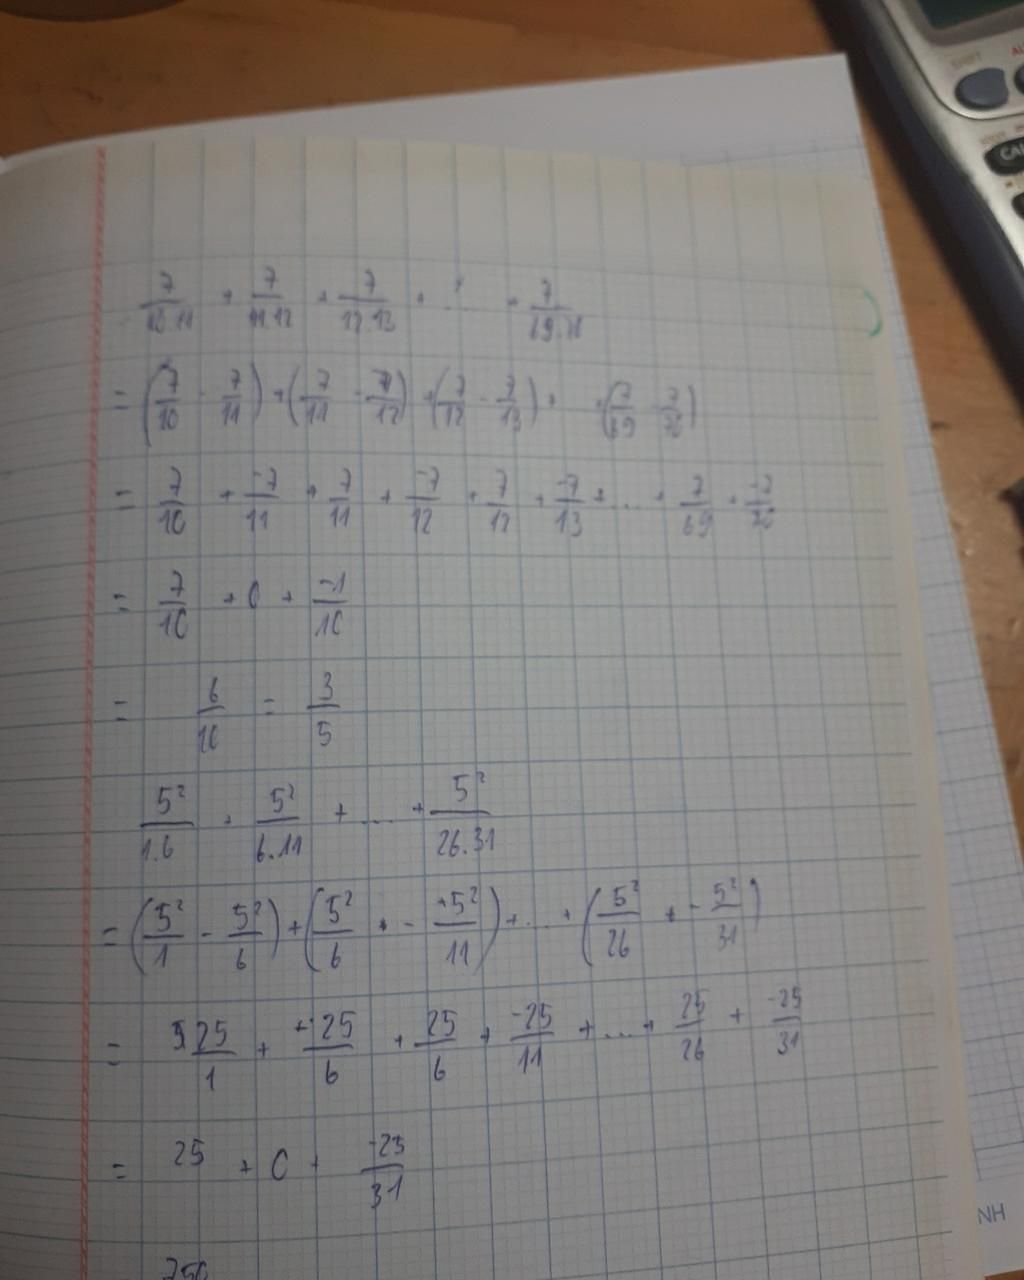 SHIFT
AL
CAL
7/10.11 + 7/11.12 + 7/12.13 + ... + 7/69.70
= (7/10 - 7/11) + (7/11 - 7/12) + (7/12 - 7/13) + +(7/69 - 7/70)
= 7/10 + -7/11 + 7/11 + -7/12 + 7/12 + -7/13 + ... + 7/69 + -7/70
= 7/10 + 0 + -1/10
= 6/10 = 3/5
5²/1.6 + 5²/6.11 + ... + 5²/26.31
= (5²/1 - 5²/6) + (5²/6 + - +5²/11) + ... + (5²/26 + - 5²/31)
= 25/1 + -25/6 + 25/6 + -25/11 + ... + 25/26 + -25/31
= 25 + 0 + -25/31
750
NH